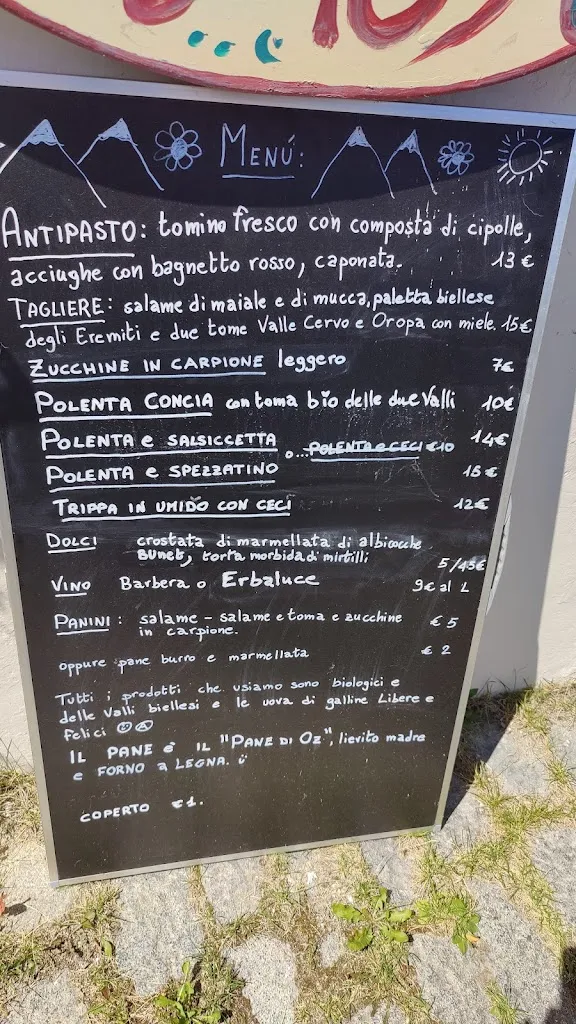 MENÚ:
ANTIPASTO: tomino fresco con composta di cipolle,
acciughe con bagnetto rosso, caponata. 13 €
TAGLIERE: salame di maiale e di mucca, paletta biellese
degli Eremiti e due tome Valle Cervo e Oropa con miele. 15€
ZUCCHINE IN CARPIONE leggero 7€
POLENTA CONCIA con toma bio delle due Valli 10€
POLENTA e SALSICCETTA o...POLENTA e CECI €10 14€
POLENTA e SPEZZATINO 15 €
TRIPPA IN UMIDO CON CECI 12€
DOLCI crostata di marmellata di albicocche
BUNET, torta morbida di mirtilli
5/4,5€
VINO Barbera o Erbaluce 9€ al L
PANINI: salame - salame e toma e zucchine € 5
in carpione.
oppure pane burro e marmellata € 2
Tutti i prodotti che usiamo sono biologici e
delle Valli biellesi e le uova di galline Libere e
felici
IL PANE è IL "PANE DI OZ", lievito madre
e FORNO a LEGNA.
COPERTO €1.